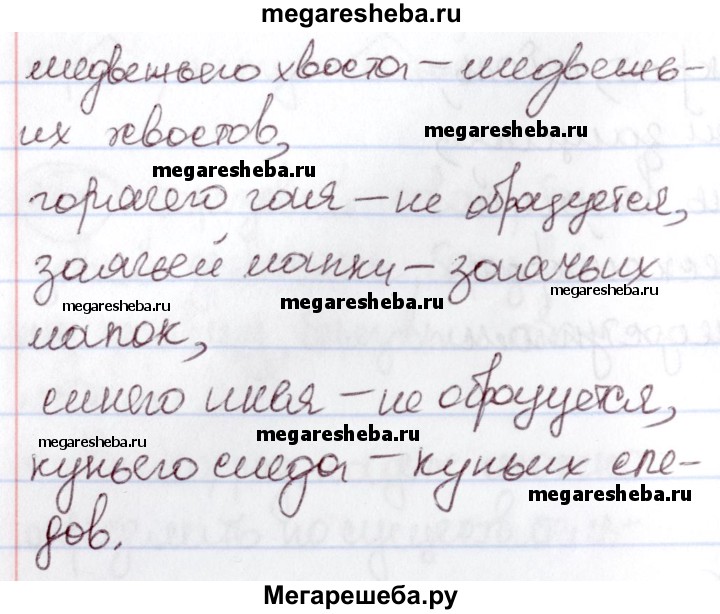 megaresheba.ru
медвежьего хвоста – медвежь-
их хвостов,
megaresheba.ru
megaresheba.ru
горячего – не образуется,
заячьей лапки – заячьих
megaresheba.ru
megaresheba.ru
megaresheba.ru
лапок,
синего инея – не образуется,
megaresheba.ru
megaresheba.ru
куньего следа – куньих сле-
megaresheba.ru
дов.
Мегарешеба.ру